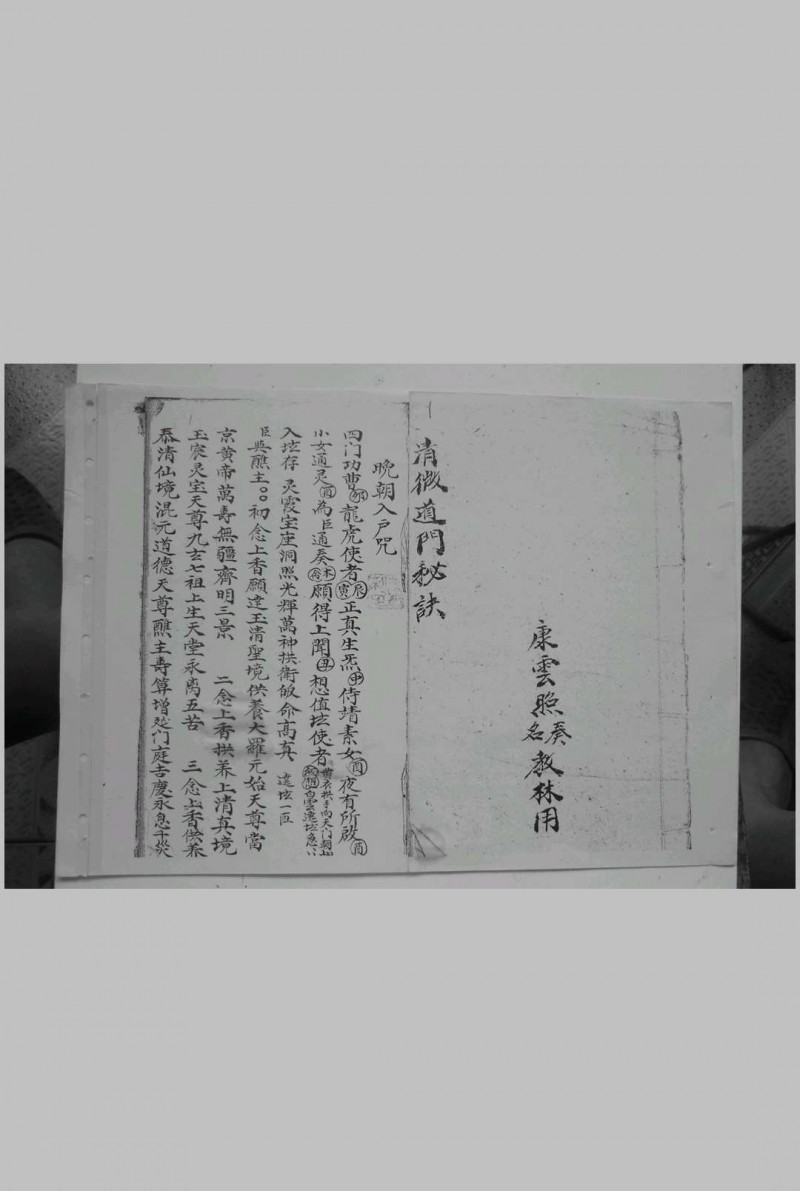 康雲照
奏名
教林用
清微道門秘訣
晚朝入戶咒
四门功曹卯龍虎使者寅辰正真生炁申侍靖素女酉夜有所啟酉
小女通灵酉為臣通奏願得上聞丑想值坛使者黄衣拱手向天门白雲遶坛
入坛存灵霞宝座洞照光輝萬神拱衛皈命高真遶坛一匝
臣與醮主〇〇初念上香願達玉清聖境供養大羅元始天尊當
京黄帝萬寿無疆齊明三景 二念上香拱养上清真境
玉宸灵宝天尊九玄七祖上生天堂永离五苦 三念上香供养
泰清仙境混元道德天尊醮主寿算增延门庭吉慶永息千災